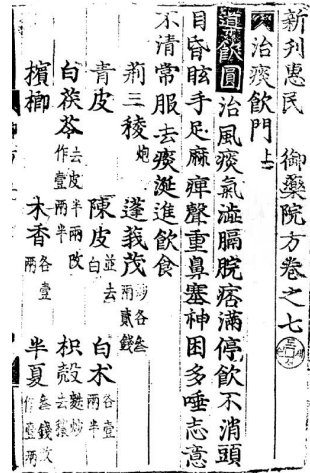 新刊惠民 御藥院方卷之七
治痰飲門上
飲圓治風痰氣澁膈脘痞滿停飲不消頭
目昏眩手足麻痺聲重鼻塞神困多唾志意
不清常服去痰涎進飲食
荊三稜炮 蓬莪茂炒各叁兩貳錢
青皮 陳皮並去白 白术各壹兩半
白茯苓去皮半兩改作壹兩半 枳殼麩炒去穰
檳榔 木香各壹兩 半夏叁錢改作壹兩